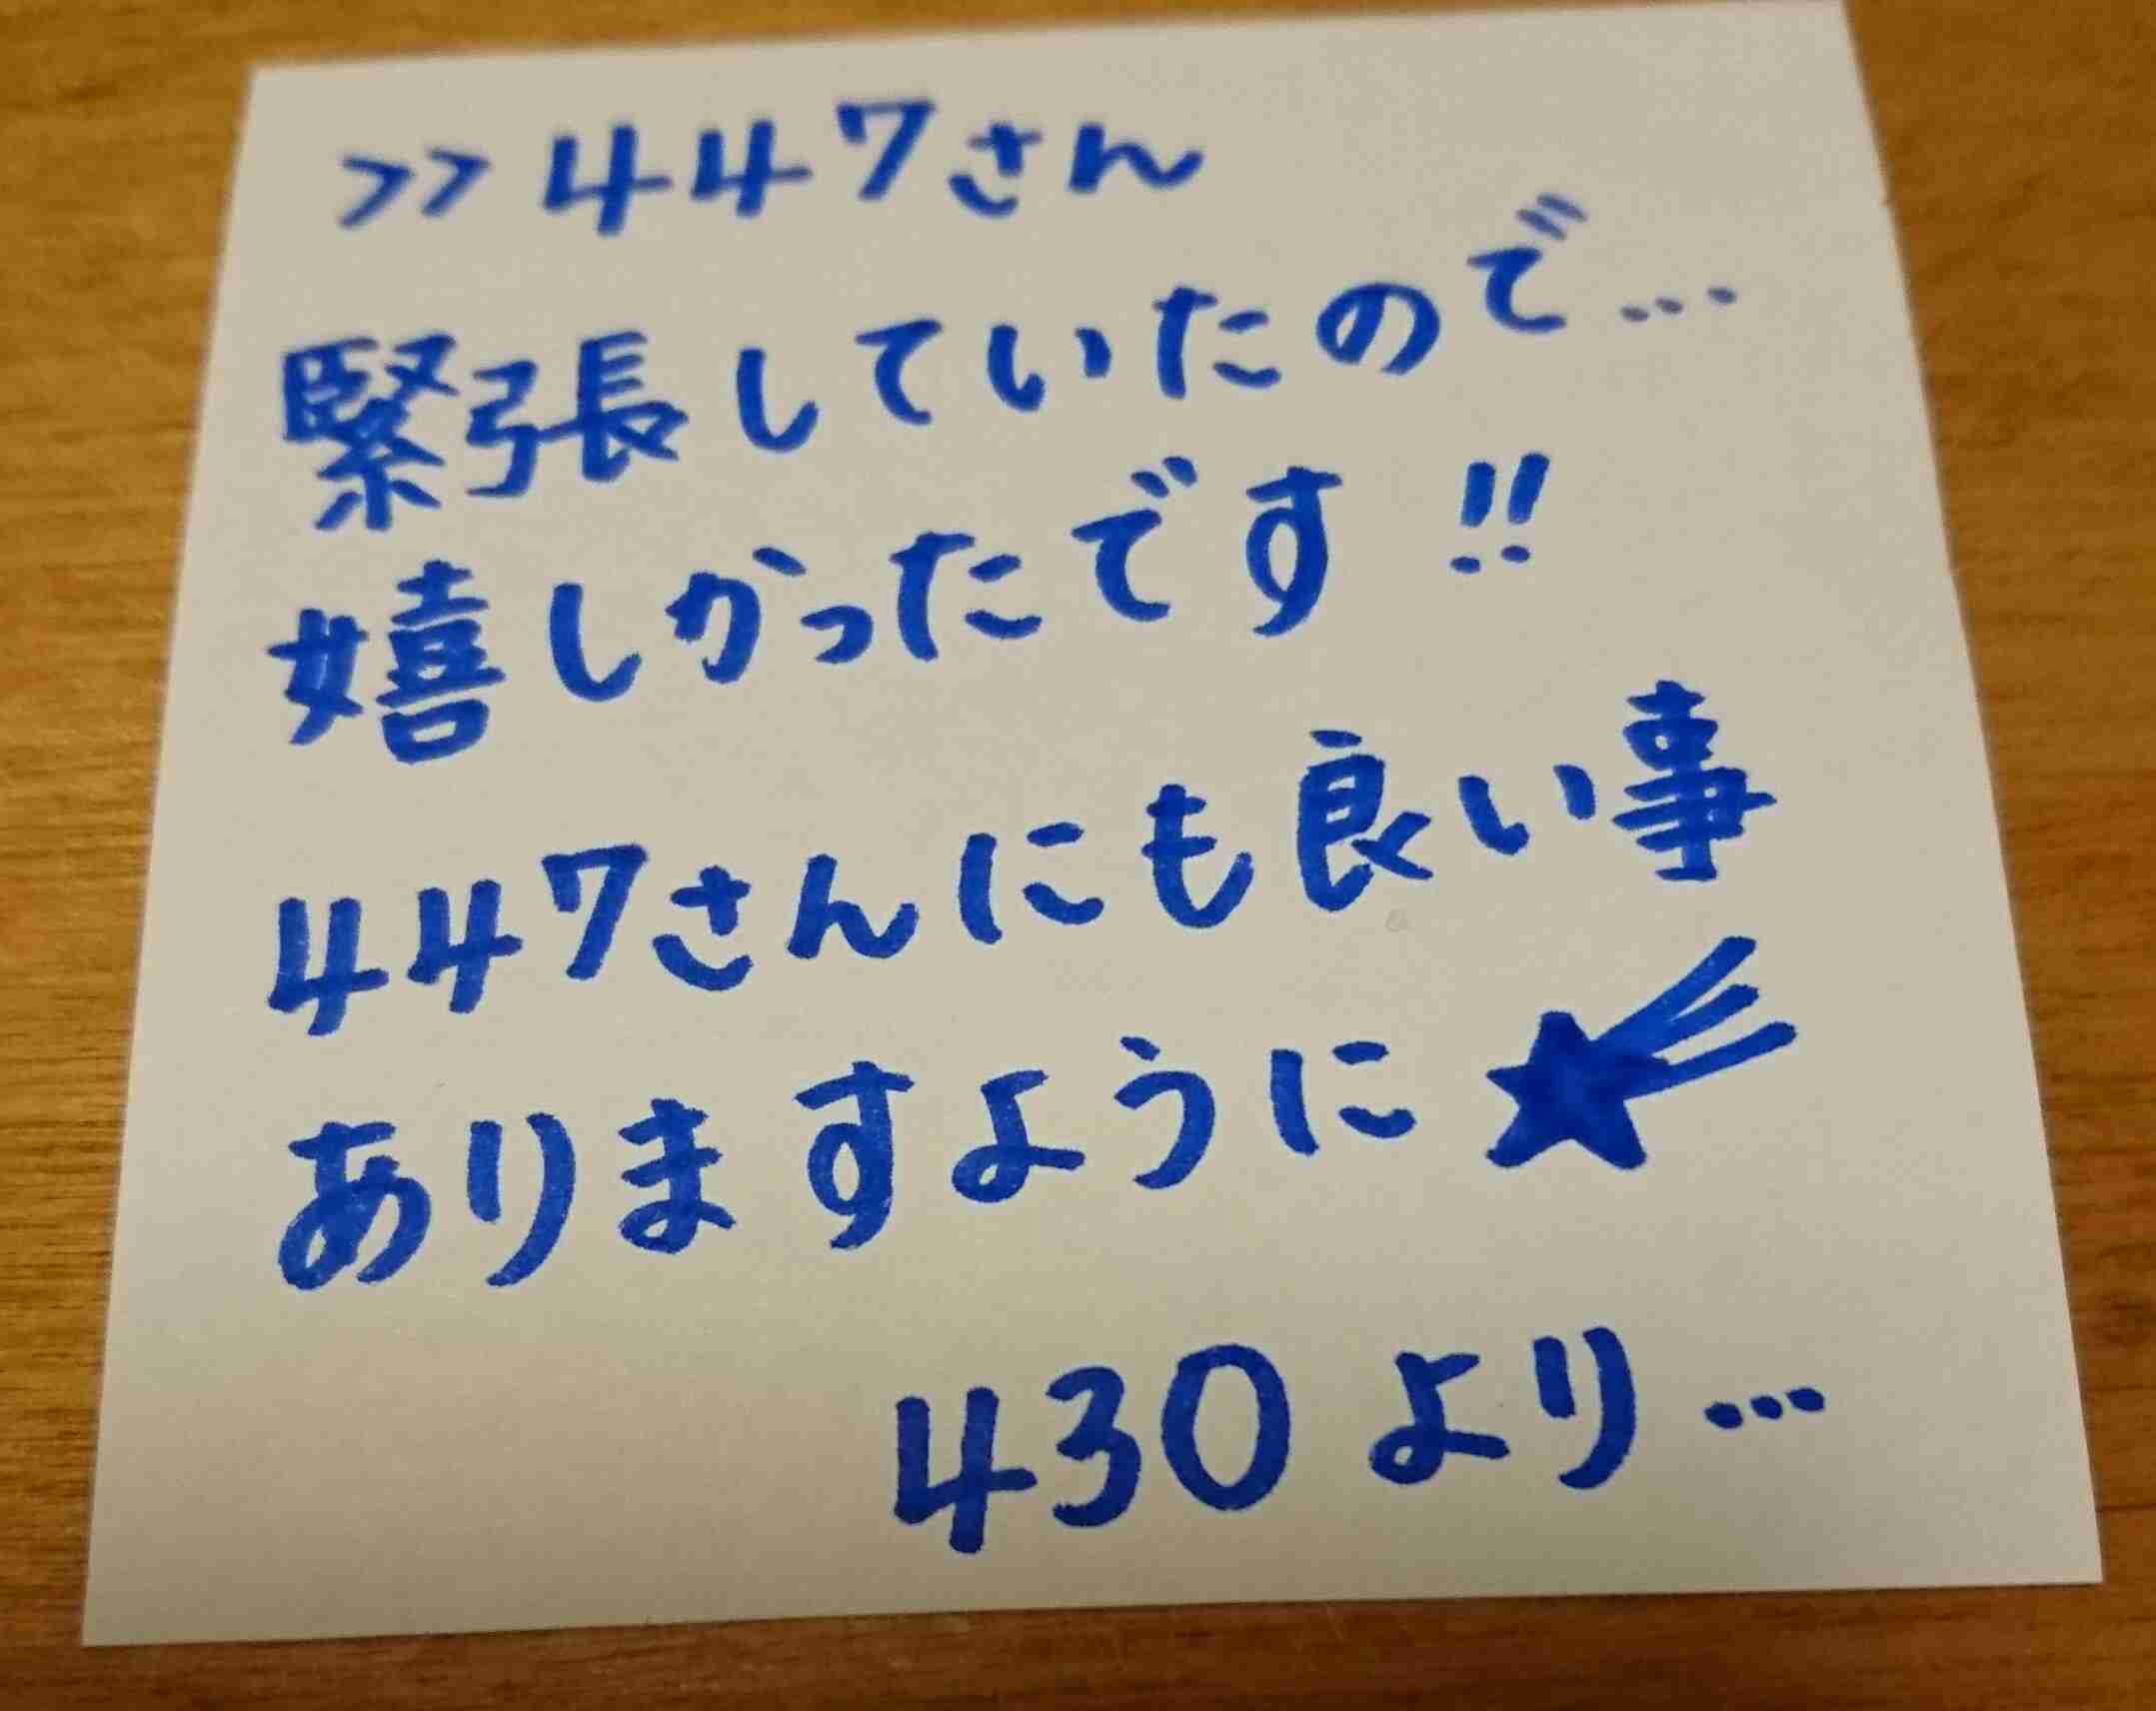 >>447さん
緊張していたので…
嬉しかったです!!
447さんにも良い事
ありますように
430より…